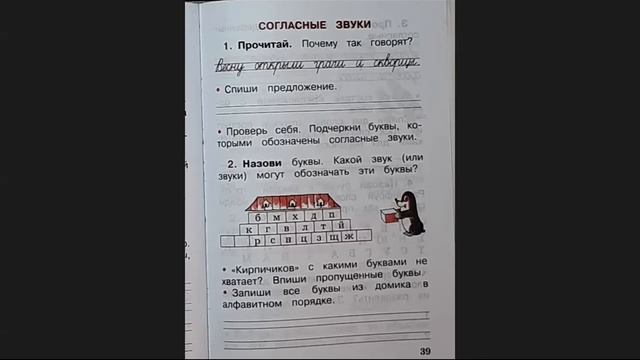 СОГЛАСНЫЕ ЗВУКИ
1. Прочитай. Почему так говорят?
Весну открыли грачи и скворцы.
• Спиши предложение.
• Проверь себя. Подчеркни буквы, ко-
торыми обозначены согласные звуки.
2. Назови буквы. Какой звук (или
звуки) могут обозначать эти буквы?
б м х д п
к г в л т й
р с н ц з щ ж
• «Кирпичиков» с какими буквами не
хватает? Впиши пропущенные буквы.
• Запиши все буквы из домика в
алфавитном порядке.
39